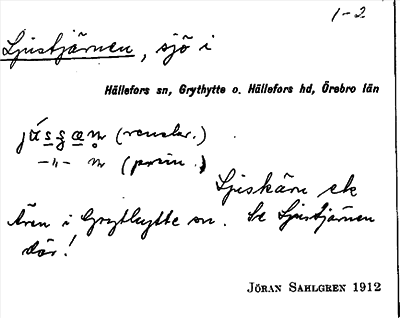 1-2
Ljustjärnen, sjö i
Hällefors sn, Grythytte o. Hällefors hd, Örebro län
(vanlar.)
-"- (prim.)
Ljuskärn ek
även i Grythytte sn. Se Ljustjärnen
där!
JÖRAN SAHLGREN 1912